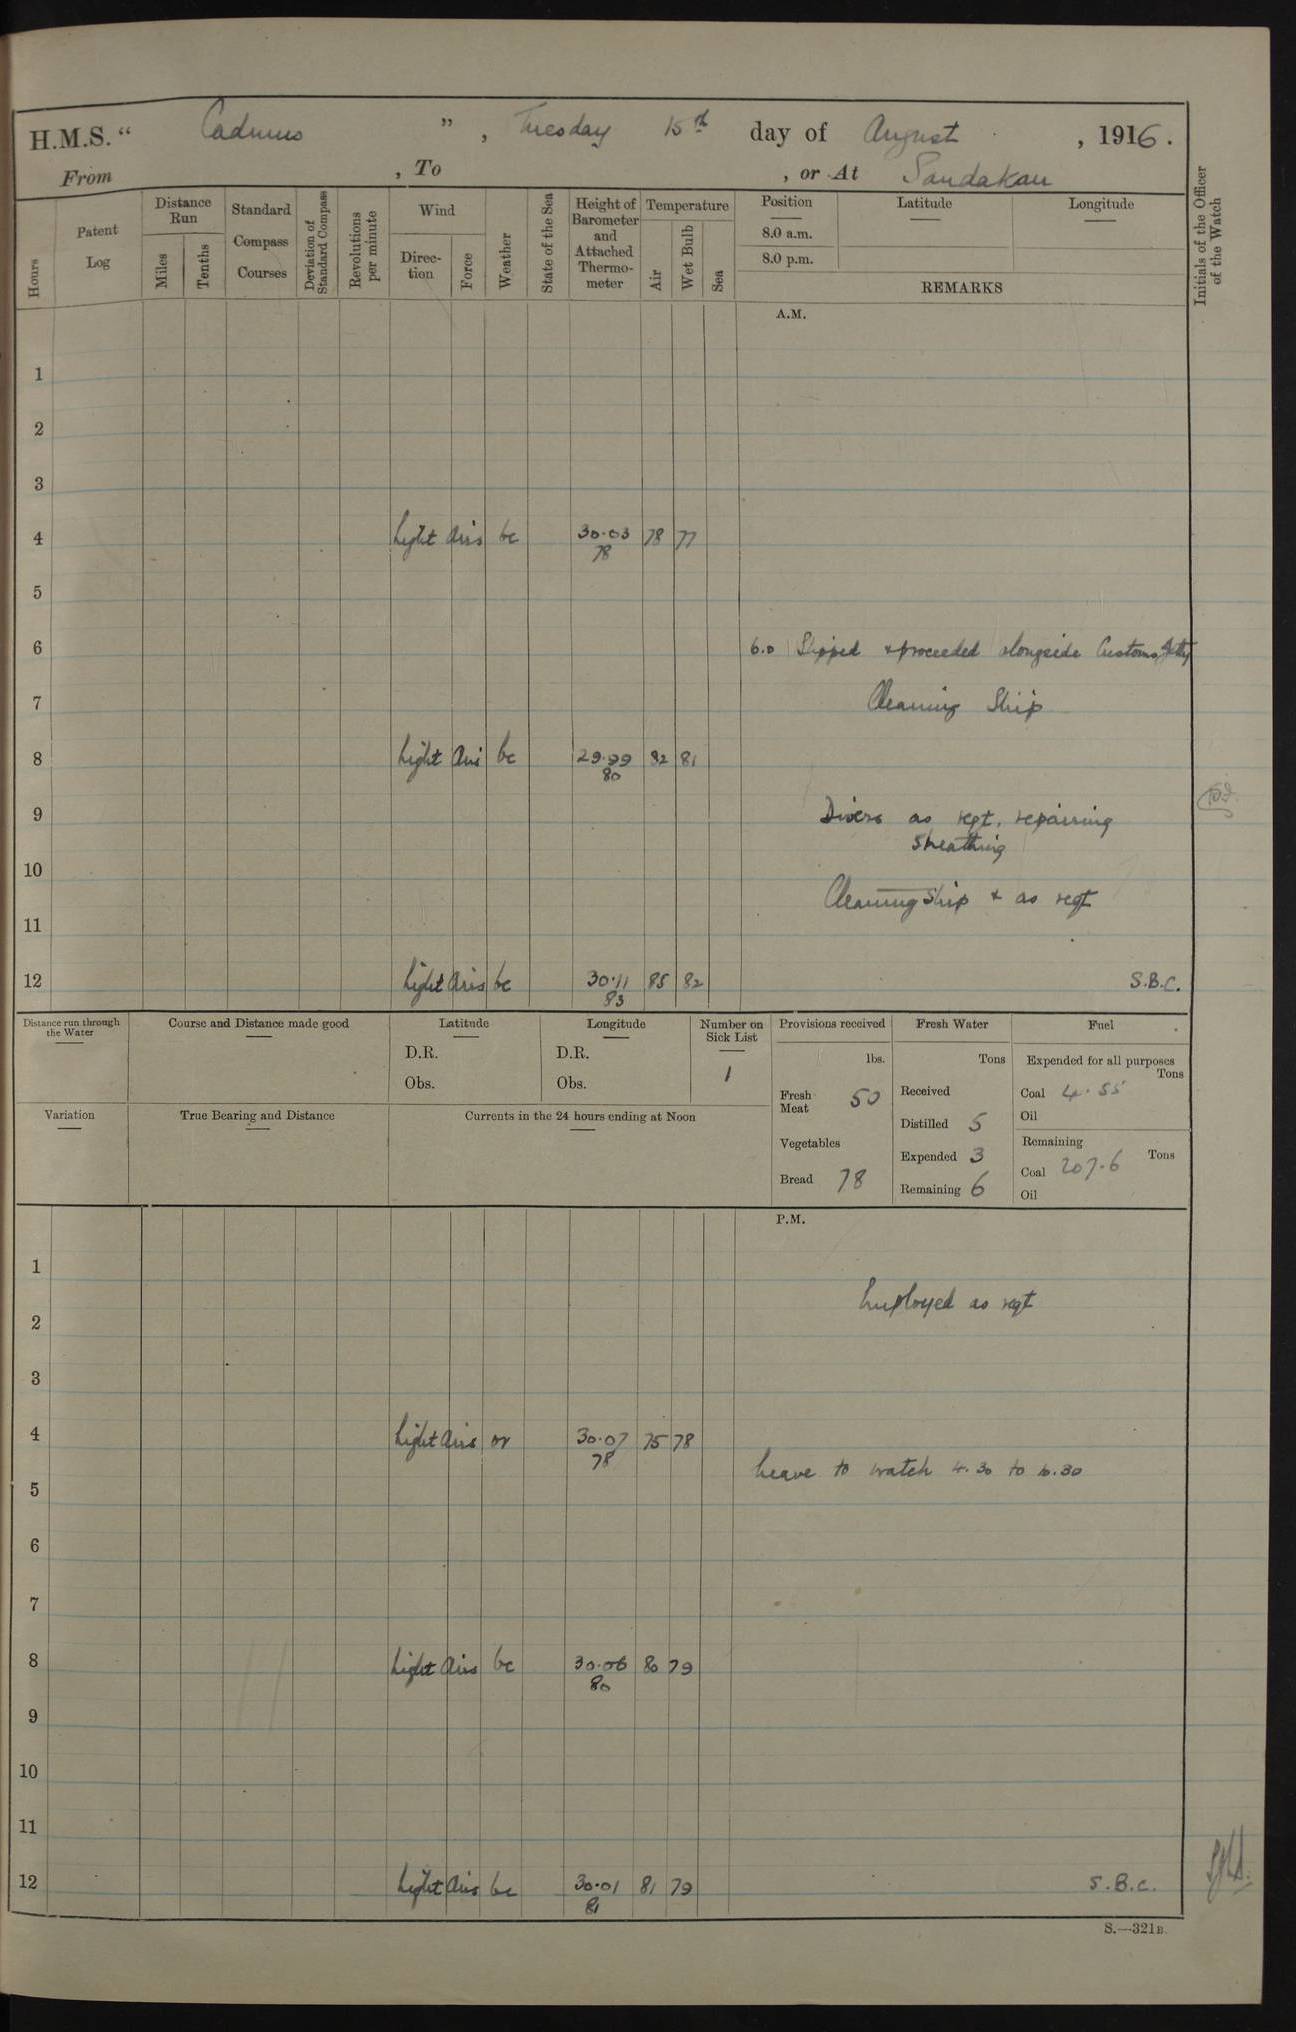 H.M.S. " Cadmus ", Tuesday 15th day of August, 1916.
From , To , or At Sandakan
Hours
Patent Log
Distance Run
Miles
Tenths
Standard Compass Courses
Deviation of Standard Compass
Revolutions per minute
Wind
Direction
Force
Weather
State of the Sea
Height of Barometer and Attached Thermometer
Temperature
Air
Wet Bulb
Sea
Position
8.0 a.m.
8.0 p.m.
Latitude
Longitude
REMARKS
Initials of the Officer of the Watch
A.M.
1
2
3
4 Light airs bc 30.03 78 77
78
5
6 6.0 Slipped & proceeded alongside Customs Jetty
7 Cleaning Ship
8 Light airs bc 29.99 82 81
80
9 Divers as reqt. repairing
sheathing
10
Cleaning Ship & as reqt
11
12 Light airs bc 30.11 85 82 S.B.C.
83
Distance run through the Water
Course and Distance made good
Latitude
D.R.
Obs.
Longitude
D.R.
Obs.
Number on Sick List
1
Variation
True Bearing and Distance
Currents in the 24 hours ending at Noon
Provisions received
lbs.
Fresh Meat 50
Vegetables
Bread 78
Fresh Water
Tons
Received
Distilled 5
Expended 3
Remaining 6
Fuel
Expended for all purposes
Tons
Coal 4.55
Oil
Remaining
Tons
Coal 207.6
Oil
P.M.
1
Employed as reqt
2
3
4 Light airs or 30.07 75 78
78
Leave to watch 4.30 to 10.30
5
6
7
8 Light airs bc 30.06 80 79
80
9
10
11
12 Light airs bc 30.01 81 79 S.B.C.
81
S.—321B.